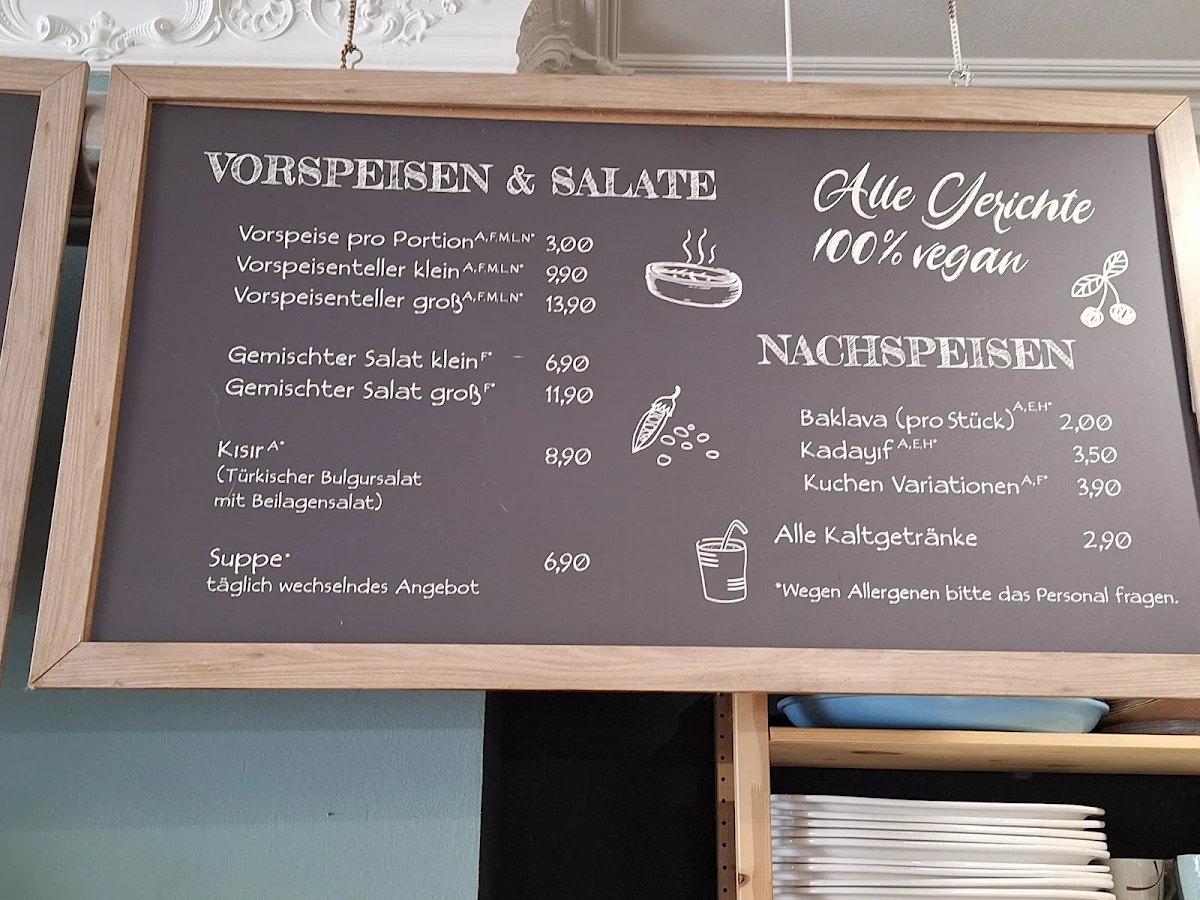 VORSPEISEN & SALATE
Vorspeise pro Portion A,F,M,L,N* 3,00
Vorspeisenteller klein A,F,M,L,N* 9,90
Vorspeisenteller groß A,F,M,L,N* 13,90
Gemischter Salat klein F* 6,90
Gemischter Salat groß F* 11,90
Kısır A* 8,90
(Türkischer Bulgursalat
mit Beilagensalat)
Suppe* 6,90
täglich wechselndes Angebot
Alle Gerichte
100% vegan
NACHSPEISEN
Baklava (pro Stück) A,E,H* 2,00
Kadayıf A,E,H* 3,50
Kuchen Variationen A,F* 3,90
Alle Kaltgetränke 2,90
*Wegen Allergenen bitte das Personal fragen.